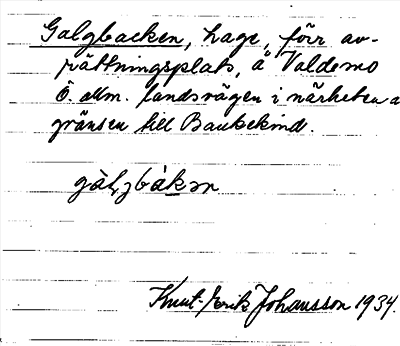 Galgbacken, hage, förr av-
rättningsplats, å Valdemo
Ö. allm. landsvägen i närheten a
gränsen till Bankekind.
gàl₂jbàkən
Knut-Erik Johansson 1934.